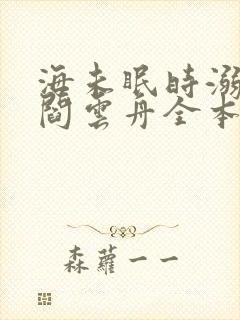 海未眠時溺
閻雲丹全本
森蘿一一